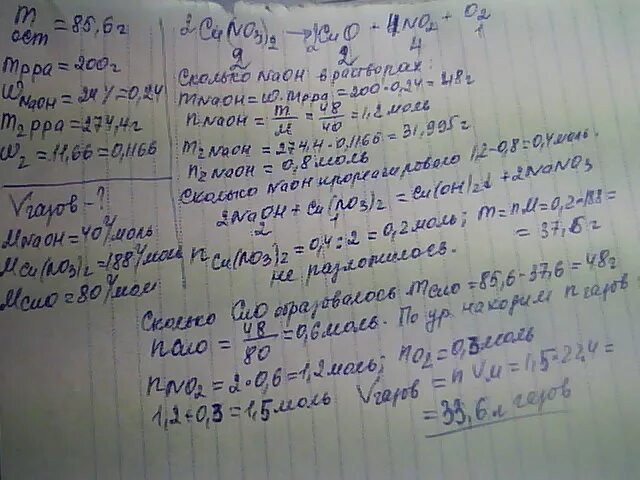 m ост = 85,6 г
mрра = 200 г
WNaOH = 24% = 0,24
m2рра = 274,4 г
W2 = 11,66 = 0,1166
Vгазов - ?
MNaOH = 40 г/моль
MCu(NO3)2 = 188 г/моль
MCuO = 80 г/моль
2Cu(NO3)2 → 2CuO + 4NO2 + O2
2 2 4 1
Сколько NaOH в растворах:
mNaOH = w·mрра = 200·0,24 = 48 г
nNaOH = m/M = 48/40 = 1,2 моль
m2NaOH = 274,4·0,1166 = 31,995 г
n2NaOH = 0,8 моль
Сколько NaOH прореагировало 1,2-0,8=0,4 моль.
2NaOH + Cu(NO3)2 = Cu(OH)2↓ + 2NaNO3
2 1
nCu(NO3)2 = 0,4:2 = 0,2 моль; m = nM = 0,2·188 =
= 37,6 г
не разложилось.
Сколько CuO образовалось mCuO = 85,6-37,6 = 48 г
nCuO = 48/80 = 0,6 моль. По ур. находим n газов:
nNO2 = 2·0,6 = 1,2 моль; nO2 = 0,3 моль
1,2+0,3 = 1,5 моль Vгазов = n Vм = 1,5·22,4 =
= 33,6 л газов